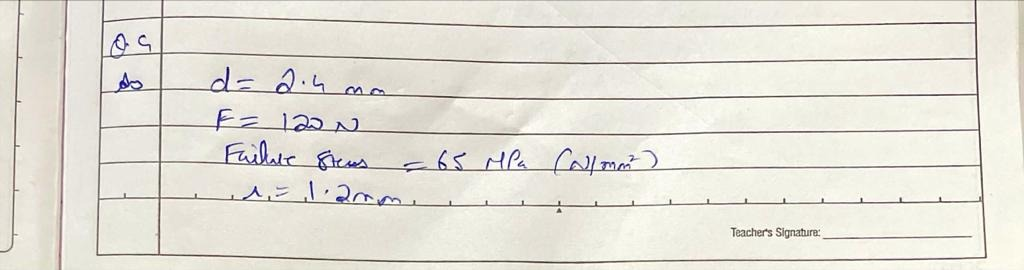 Q 4
d = 2.4 mm
F = 120 N
Failure Stress = 65 MPa (N/mm²)
r = 1.2mm
Teacher's Signature: